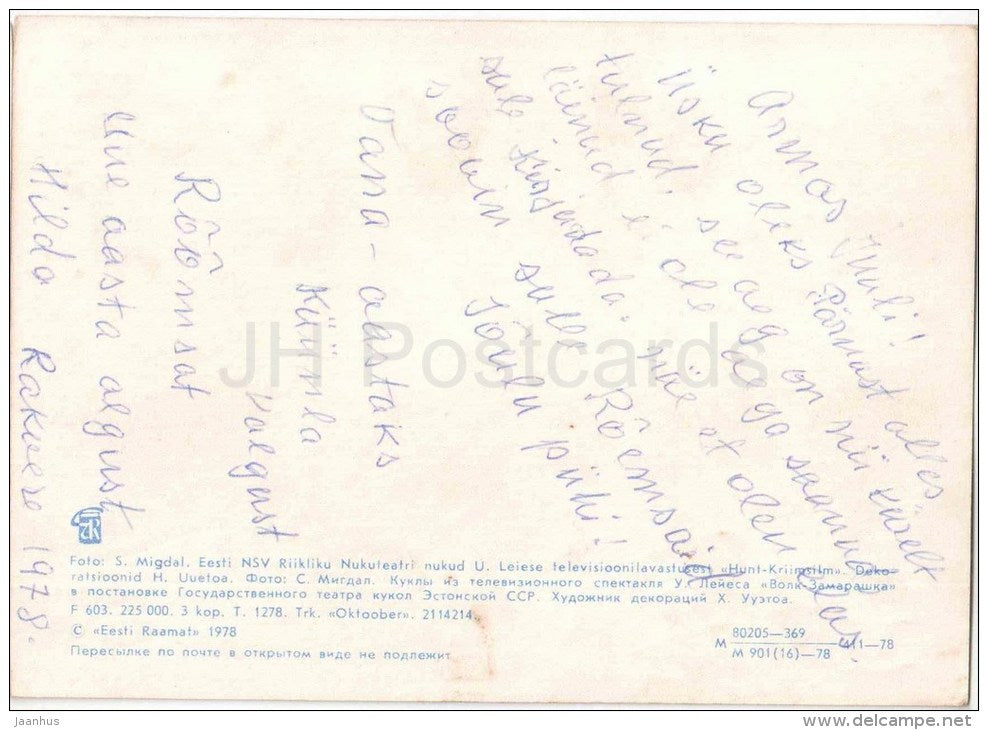 Armas Juuli!
Üsku oleks Pärnust alles
tulnud. see aeg on nii kiirelt
läinud ei ole aega saanud
sule kirjutada. nüüd olen
soovin sulle Rõõmsaid
Jõulu pühi!
Vana-aastaks
Küünla
valgust
Rõõmsat
uue aasta algust
Hilda Rakvere 1978.
JH Postcards
Foto: S. Migdal. Eesti NSV Riikliku Nukuteatri nukud U. Leiese televisioonilavastusest «Hunt-Kriimsilm». Deko-
ratsioonid H. Uuetoa. Фото: С. Мигдал. Куклы из телевизионного спектакля У. Лейеса «Волк-Замарашка»
в постановке Государственного театра кукол Эстонской ССР. Художник декораций Х. Ууэтоа.
F 603. 225 000. 3 kop. T. 1278. Trk. «Oktoober». 2114214.
© «Eesti Raamat» 1978
Пересылке по почте в открытом виде не подлежит
М 80205—369 411—78
М 901(16)—78
jaanhus
www.delcampe.net